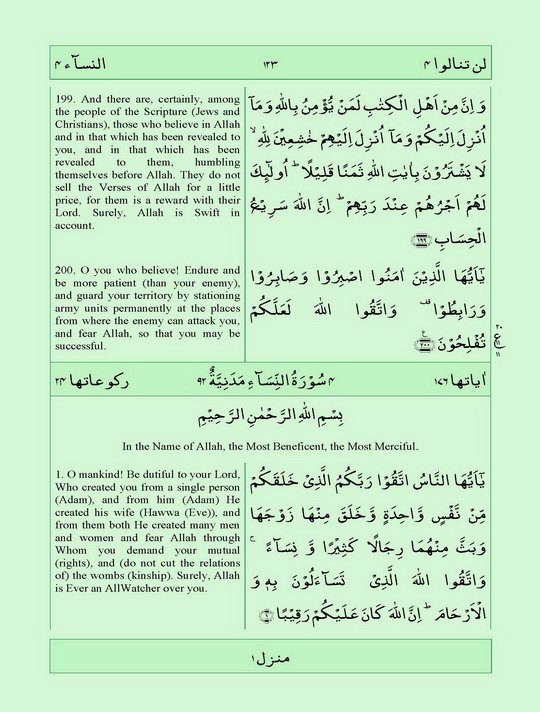 لن تنالوا ۴ ۱۲۳ النسآء ۴
199. And there are, certainly, among
the people of the Scripture (Jews and
Christians), those who believe in Allah
and in that which has been revealed to
you, and in that which has been
revealed to them, humbling
themselves before Allah. They do not
sell the Verses of Allah for a little
price, for them is a reward with their
Lord. Surely, Allah is Swift in
account.
وَ اِنَّ مِنْ اَهْلِ الْكِتٰبِ لَمَنْ يُّؤْمِنُ بِاللّٰهِ وَمَاۤ
اُنْزِلَ اِلَيْكُمْ وَمَاۤ اُنْزِلَ اِلَيْهِمْ خٰشِعِيْنَ لِلّٰهِ ۙ
لَا يَشْتَرُوْنَ بِاٰيٰتِ اللّٰهِ ثَمَنًا قَلِيْلًا ؕ اُولٰٓئِكَ
لَهُمْ اَجْرُهُمْ عِنْدَ رَبِّهِمْ ؕ اِنَّ اللّٰهَ سَرِيْعُ
الْحِسَابِ ۱۹۹
200. O you who believe! Endure and
be more patient (than your enemy),
and guard your territory by stationing
army units permanently at the places
from where the enemy can attack you,
and fear Allah, so that you may be
successful.
يٰۤاَيُّهَا الَّذِيْنَ اٰمَنُوا اصْبِرُوْا وَصَابِرُوْا
وَرَابِطُوْا ۟ وَاتَّقُوا اللّٰهَ لَعَلَّكُمْ
تُفْلِحُوْنَ ۲۰۰
۲۰
ع
۱۱
اٰياتها ۱۷۶ ۴ سُوْرَةُ النِّسَآءِ مَدَنِيَّةٌ ۹۲ ركوعاتها ۲۴
بِسْمِ اللّٰهِ الرَّحْمٰنِ الرَّحِيْمِ
In the Name of Allah, the Most Beneficent, the Most Merciful.
1. O mankind! Be dutiful to your Lord,
Who created you from a single person
(Adam), and from him (Adam) He
created his wife (Hawwa (Eve)), and
from them both He created many men
and women and fear Allah through
Whom you demand your mutual
(rights), and (do not cut the relations
of) the wombs (kinship). Surely, Allah
is Ever an AllWatcher over you.
يٰۤاَيُّهَا النَّاسُ اتَّقُوْا رَبَّكُمُ الَّذِيْ خَلَقَكُمْ
مِّنْ نَّفْسٍ وَّاحِدَةٍ وَّخَلَقَ مِنْهَا زَوْجَهَا
وَبَثَّ مِنْهُمَا رِجَالًا كَثِيْرًا وَّ نِسَآءً ۚ
وَاتَّقُوا اللّٰهَ الَّذِيْ تَسَآءَلُوْنَ بِهٖ وَ
الْاَرْحَامَ ؕ اِنَّ اللّٰهَ كَانَ عَلَيْكُمْ رَقِيْبًا ۱
منزل ۱